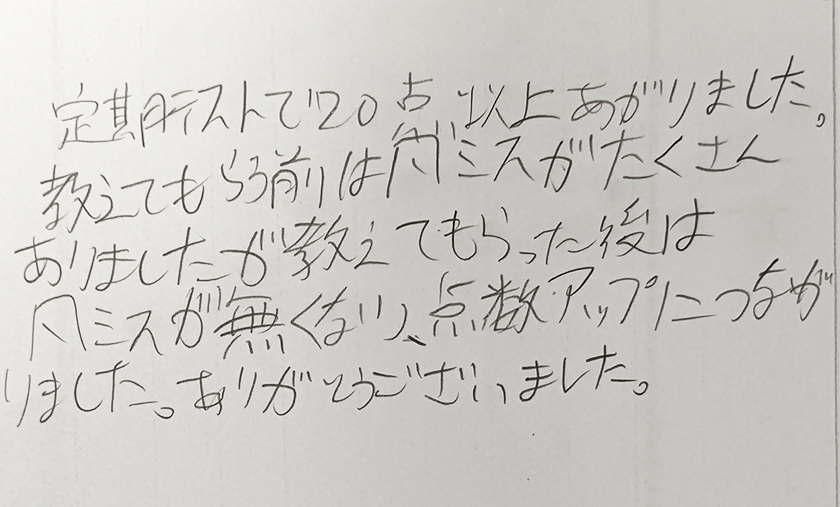 定期テストで20点以上あがりました。
教えてもらう前は凡ミスがたくさん
ありましたが教えてもらった後は
凡ミスが無くなり、点数アップにつなが
りました。ありがとうございました。